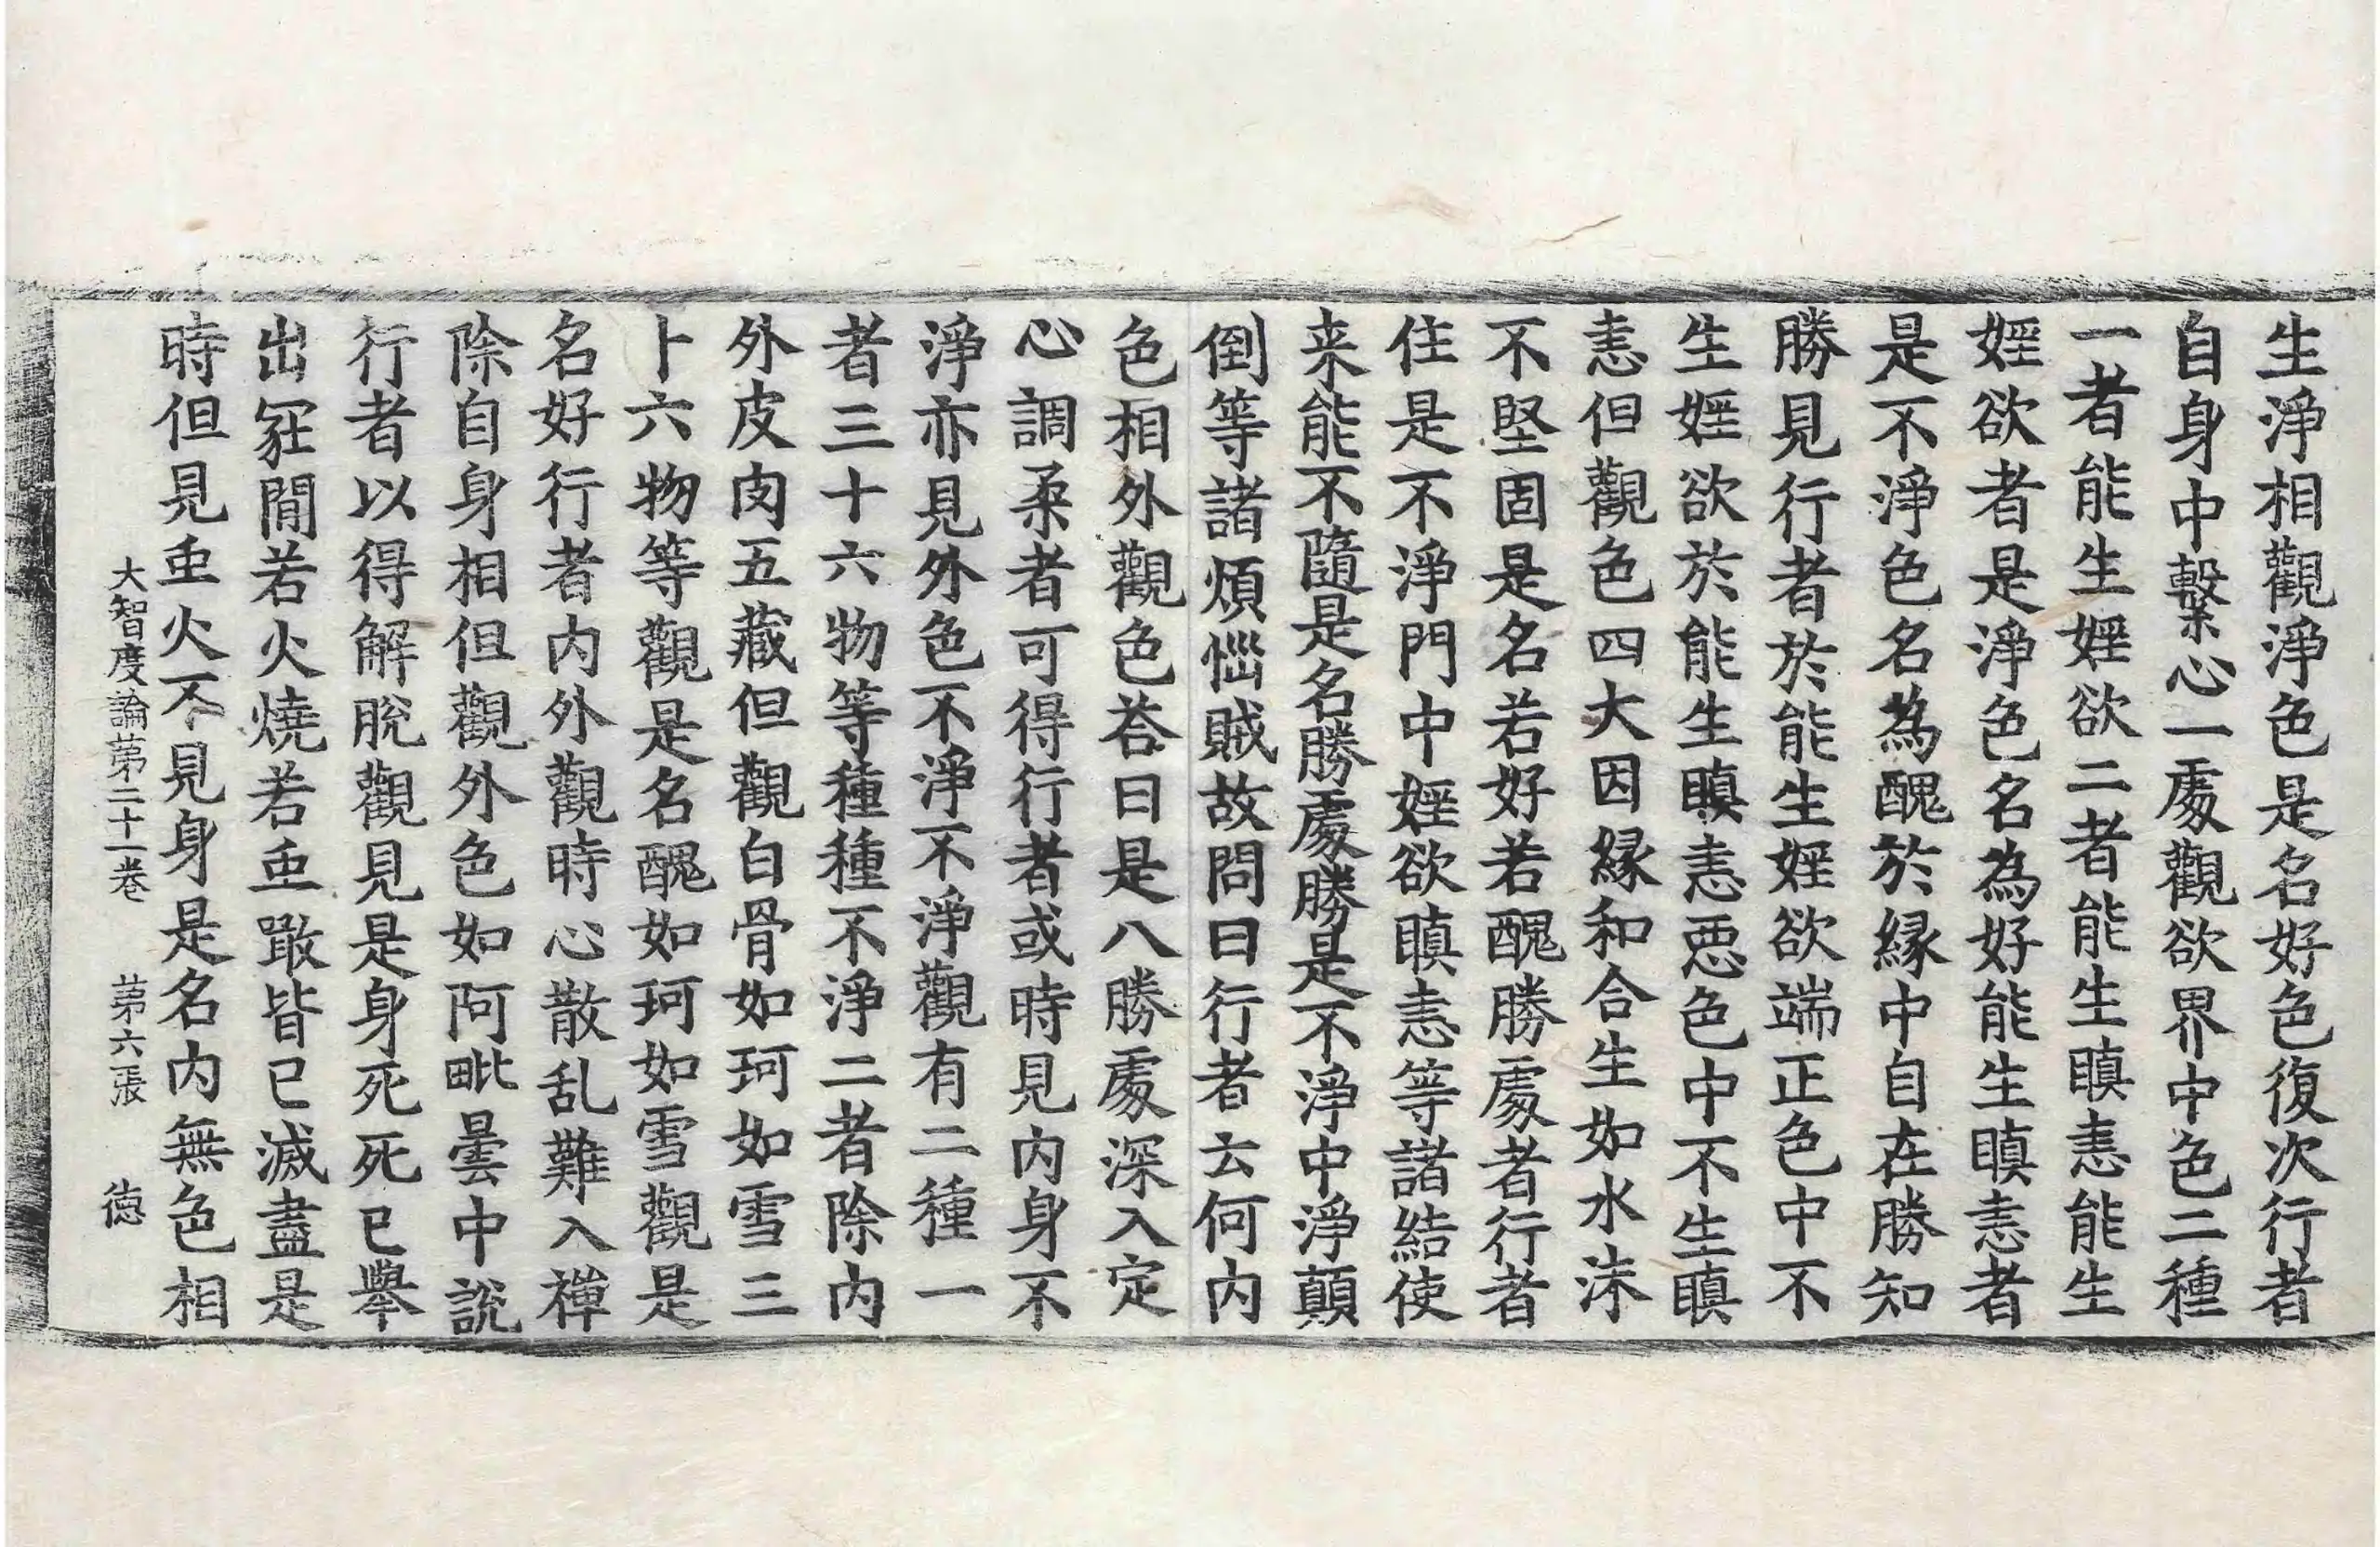 生淨相觀淨色是名好色復次行者
自身中繫心一處觀欲界中色二種
一者能生婬欲二者能生瞋恚能生
婬欲者是淨色名為好能生瞋恚者
是不淨色名為醜於緣中自在勝知
勝見行者於能生婬欲端正色中不
生婬欲於能生瞋恚惡色中不生瞋
恚但觀色四大因緣和合生如水沫
不堅固是名若好若醜勝處者行者
住是不淨門中婬欲瞋恚等諸結使
来能不隨是名勝處勝是不淨中淨顛
倒等諸煩惱賊故問曰行者云何內
色相外觀色荅曰是八勝處深入定
心調柔者可得行者或時見內身不
淨亦見外色不淨不淨觀有二種一
者三十六物等種種不淨二者除內
外皮肉五藏但觀白骨如珂如雪三
卜六物等觀是名醜如珂如雪觀是
名好行者內外觀時心散乱難入禪
除自身相但觀外色如阿毗曇中說
行者以得解脫觀見是身死死已舉
出冢間若火燒若虫噉皆已滅盡是
時但見虫火不見身是名內無色相
大智度論第二十一卷 第六張 德